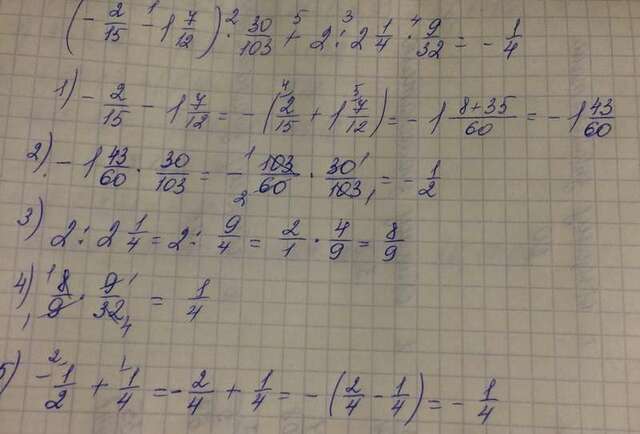 (- 2/15 - 1 7/12) · 30/103 + 2 : 2 1/4 · 9/32 = - 1/4
1) - 2/15 - 1 7/12 = - (2/15 + 1 7/12) = - 1 8+35/60 = - 1 43/60
2) - 1 43/60 · 30/103 = - 103/60 · 30/103 = - 1/2
3) 2 : 2 1/4 = 2 : 9/4 = 2/1 · 4/9 = 8/9
4) 8/9 · 9/32 = 1/4
5) - 1/2 + 1/4 = - 2/4 + 1/4 = - (2/4 - 1/4) = - 1/4